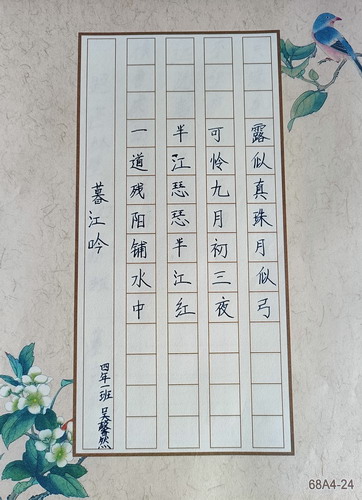 暮江吟
四年一班 吴馨然
一道残阳铺水中
半江瑟瑟半江红
可怜九月初三夜
露似真珠月似弓
68A4-24